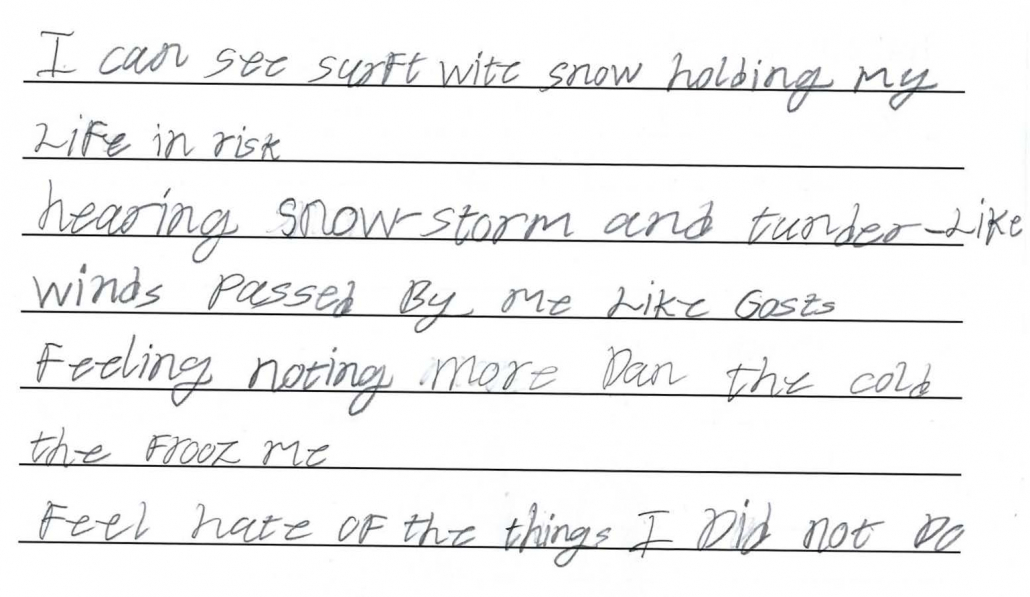 I can see surft wite snow holding my
Life in risk
hearing snow-storm and tunder-Like
winds passed By me Like Gosts
Feeling noting more Dan the cold
the Frooz me
Feel hate oF the things I Did not Do